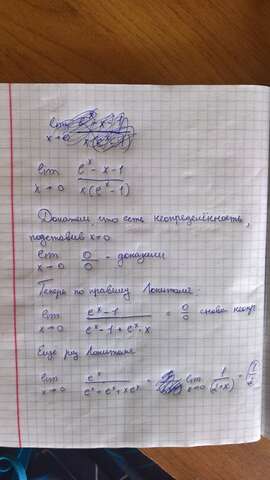 lim x→0 (e^x - x - 1)/(x(e^x - 1))
Докажем что есть неопределённость,
подставив x=0
lim x→0 0/0 - доказали
Теперь по правилу Лопиталя:
lim x→0 (e^x - 1)/(e^x - 1 + e^x · x) = 0/0 снова
Ещё раз Лопиталя
lim x→0 e^x/(e^x + e^x + xe^x) = lim x→0 1/(2+x) = 1/2